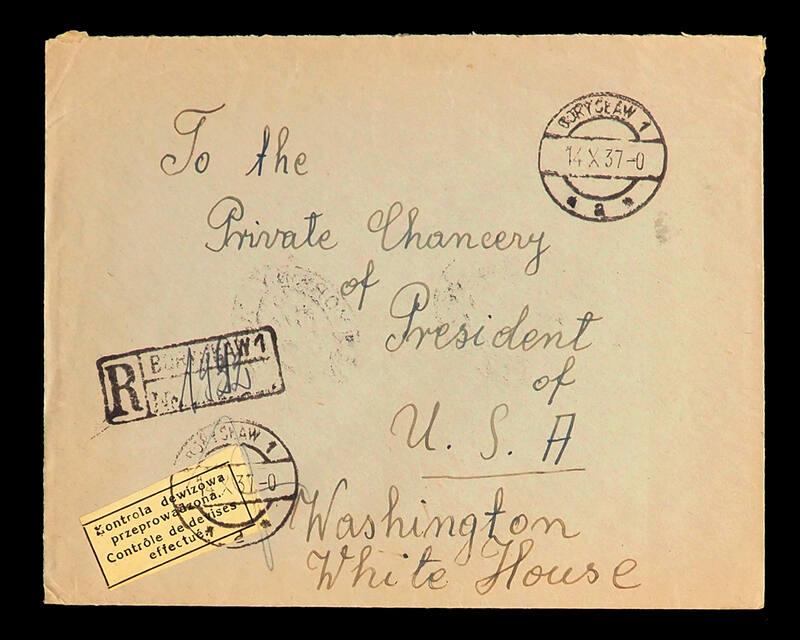 BORYSŁAW 1
14 X 37-0
* a *
To the
Private Chancery
of
President
of
U. S. A
Washington
White House
R
BORYSŁAW 1
Nr
BORYSŁAW 1
14 X 37-0
* a *
Kontrola dewizowa
przeprowadzona.
Contrôle de devises
effectué.